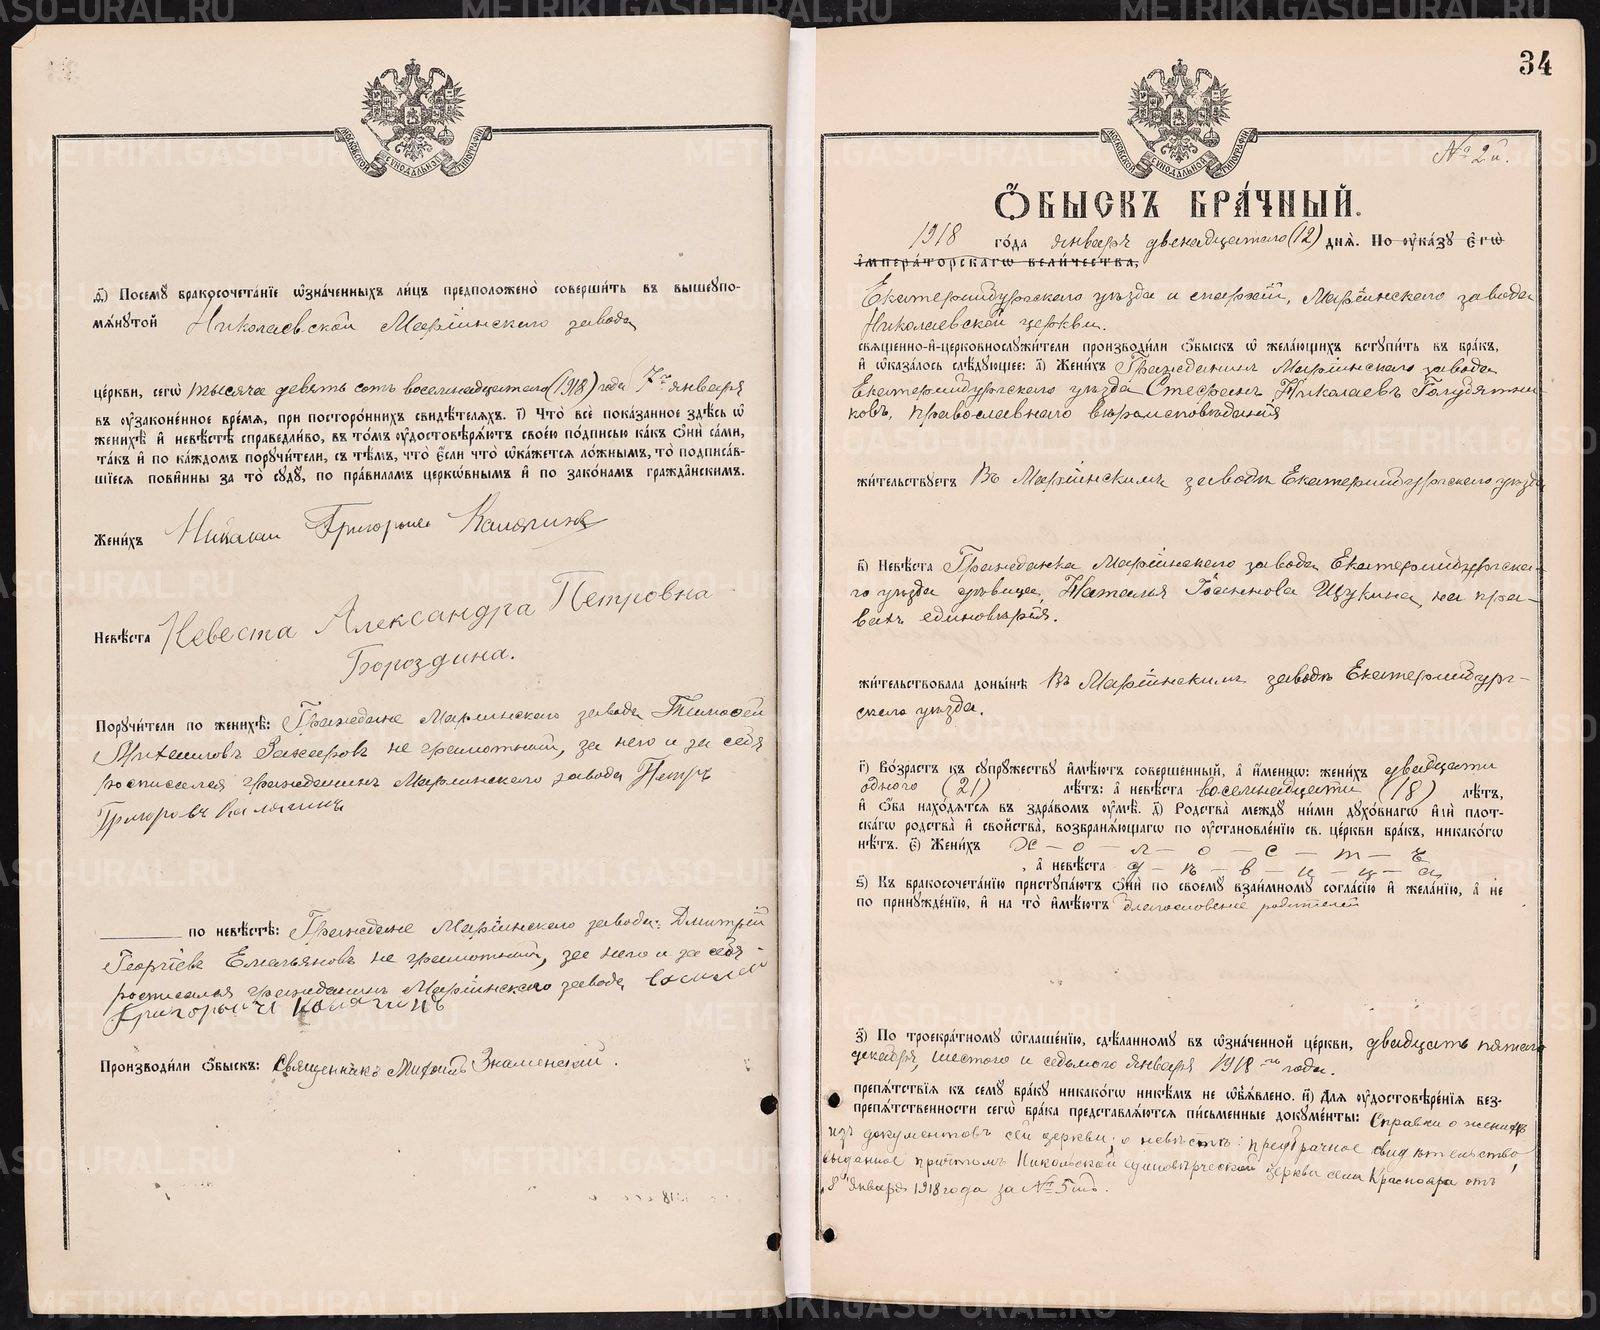 а҃) Посему бракосочетанїе ѡзначенныхъ лицъ предположено совершить въ вышеупо-
мянутой Николаевской Марiинскаго завода
церкви, сегѡ тысяча девять сотъ восемнадцатаго (1918) года 7го января
въ узаконенное время, при постороннихъ свидѣтеляхъ. ѳ҃) Что все показанное здѣсь ѡ
женихѣ и невѣстѣ справедливо, въ томъ удостовѣряютъ своею подписью какъ ѻни сами,
такъ и по каждомъ поручители, съ тѣмъ, что если что ѡкажется ложнымъ, то подписав-
шїеся повинны за то суду, по правиламъ церкѡвнымъ и по законамъ гражданскимъ.
Женихъ Николай Григорьев Калягинъ
Невѣста Невеста Александра Петровна
Бороздина.
Поручители по женихѣ: Граждане Марiинскаго завода Тимофей
Михаиловъ Захаровъ не грамотный, за него и за себя
росписался гражданинъ Марiинскаго завода Петръ
Григоровъ Калягинъ
по невѣстѣ: Граждане Марiинскаго завода: Дмитрiй
Георгiевъ Емельяновъ не грамотный, за него и за себя
росписался гражданинъ Марiинскаго завода Василий
Григорьичъ Калягинъ
Производили ѻбыскъ: Священникъ Михаилъ Знаменский.
34
№ 2й.
Ѻбыскъ брачный.
1918 года января двенадцатаго (12) дня. По указу Егѡ
Императорскагѡ Величества,
Екатеринбургскаго уѣзда и епархiи, Марiинскаго завода
Николаевской церкви.
священно-и-церковнослужители производили ѻбыскъ ѡ желающихъ вступить въ бракъ,
и ѡказалось слѣдующее: а҃) Женихъ Гражданинъ Марiинскаго завода
Екатеринбургскаго уѣзда Стефанъ Николаевъ Голудятни
ковъ, православнаго вѣроисповѣданiя
жительствуетъ Въ Марiинскимъ заводѣ Екатеринбургскаго уѣзда
в҃) Невѣста Гражданка Марiинскаго завода Екатеринбургска-
го уѣзда дѣвица Наталья Iоаннова Щукина, на пра-
вахъ единовѣрiя.
жительствовала донынѣ Въ Марiинскимъ заводѣ Екатеринбург-
скаго уѣзда.
г҃) Возрастъ къ супружеству имѣютъ совершенный, а именнѡ: женихъ двадцати
одного (21) лѣтъ: а невѣста восемнадцати (18) лѣтъ,
и ѻба находятся въ здравомъ умѣ. д҃) Родства между ними духовнагѡ или плот-
скагѡ родства и свойства, возбраняющагѡ по установленїю св. церкви бракъ, никакогѡ
нѣтъ. є҃) Женихъ х – о – л – о – с – т – ъ
, а невѣста д – ѣ – в – и – ц – а
ѕ҃) Къ бракосочетанїю приступаютъ ѻни по своему взаимному согласїю и желанїю, а не
по принужденїю, и на то имѣютъ благословенiе родителей
з҃) По троекратному ѡглашенїю, сдѣланному въ ѡзначенной церкви, двадцать пятаго
декабря, шестого и седьмого января 1918 го года.
препятствїя къ сему браку никакогѡ никѣмъ не ѡбъявлено. и҃) Для удостовѣренїя без-
препятственности сегѡ брака представляются письменные документы: Справки о женихѣ
изъ документовъ сей церкви; о невѣстѣ: предбрачное свидѣтельство,
выданное причтомъ Никольской единовѣрческой церкви села Краснояра отъ
8го января 1918 года за № 5мъ.